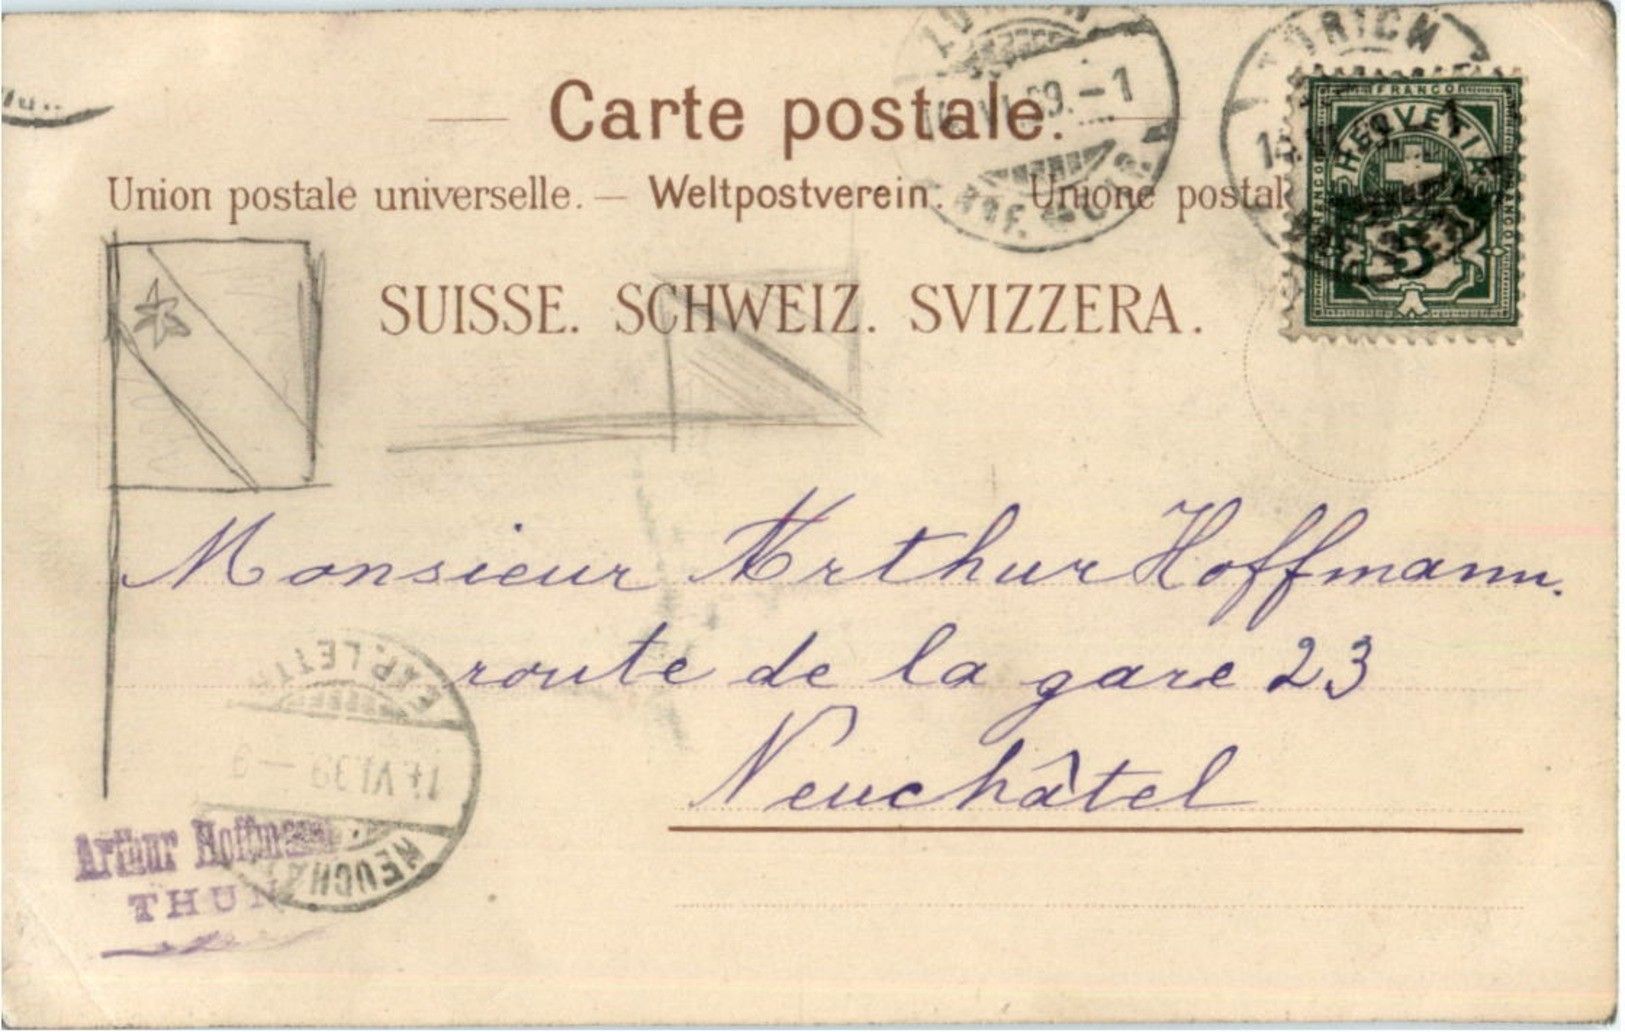 ZÜRICH
VI.99.-1
ZÜRICH
Carte postale.
FRANCO
HELVETIA
5
Union postale universelle. — Weltpostverein. Unione postal
SUISSE. SCHWEIZ. SVIZZERA.
Monsieur Arthur Hoffmann.
route de la gare 23
Neuchâtel
EXP. LETTR
VI.99-9
NEUCHÂ
Arthur Hoffmann
THUN